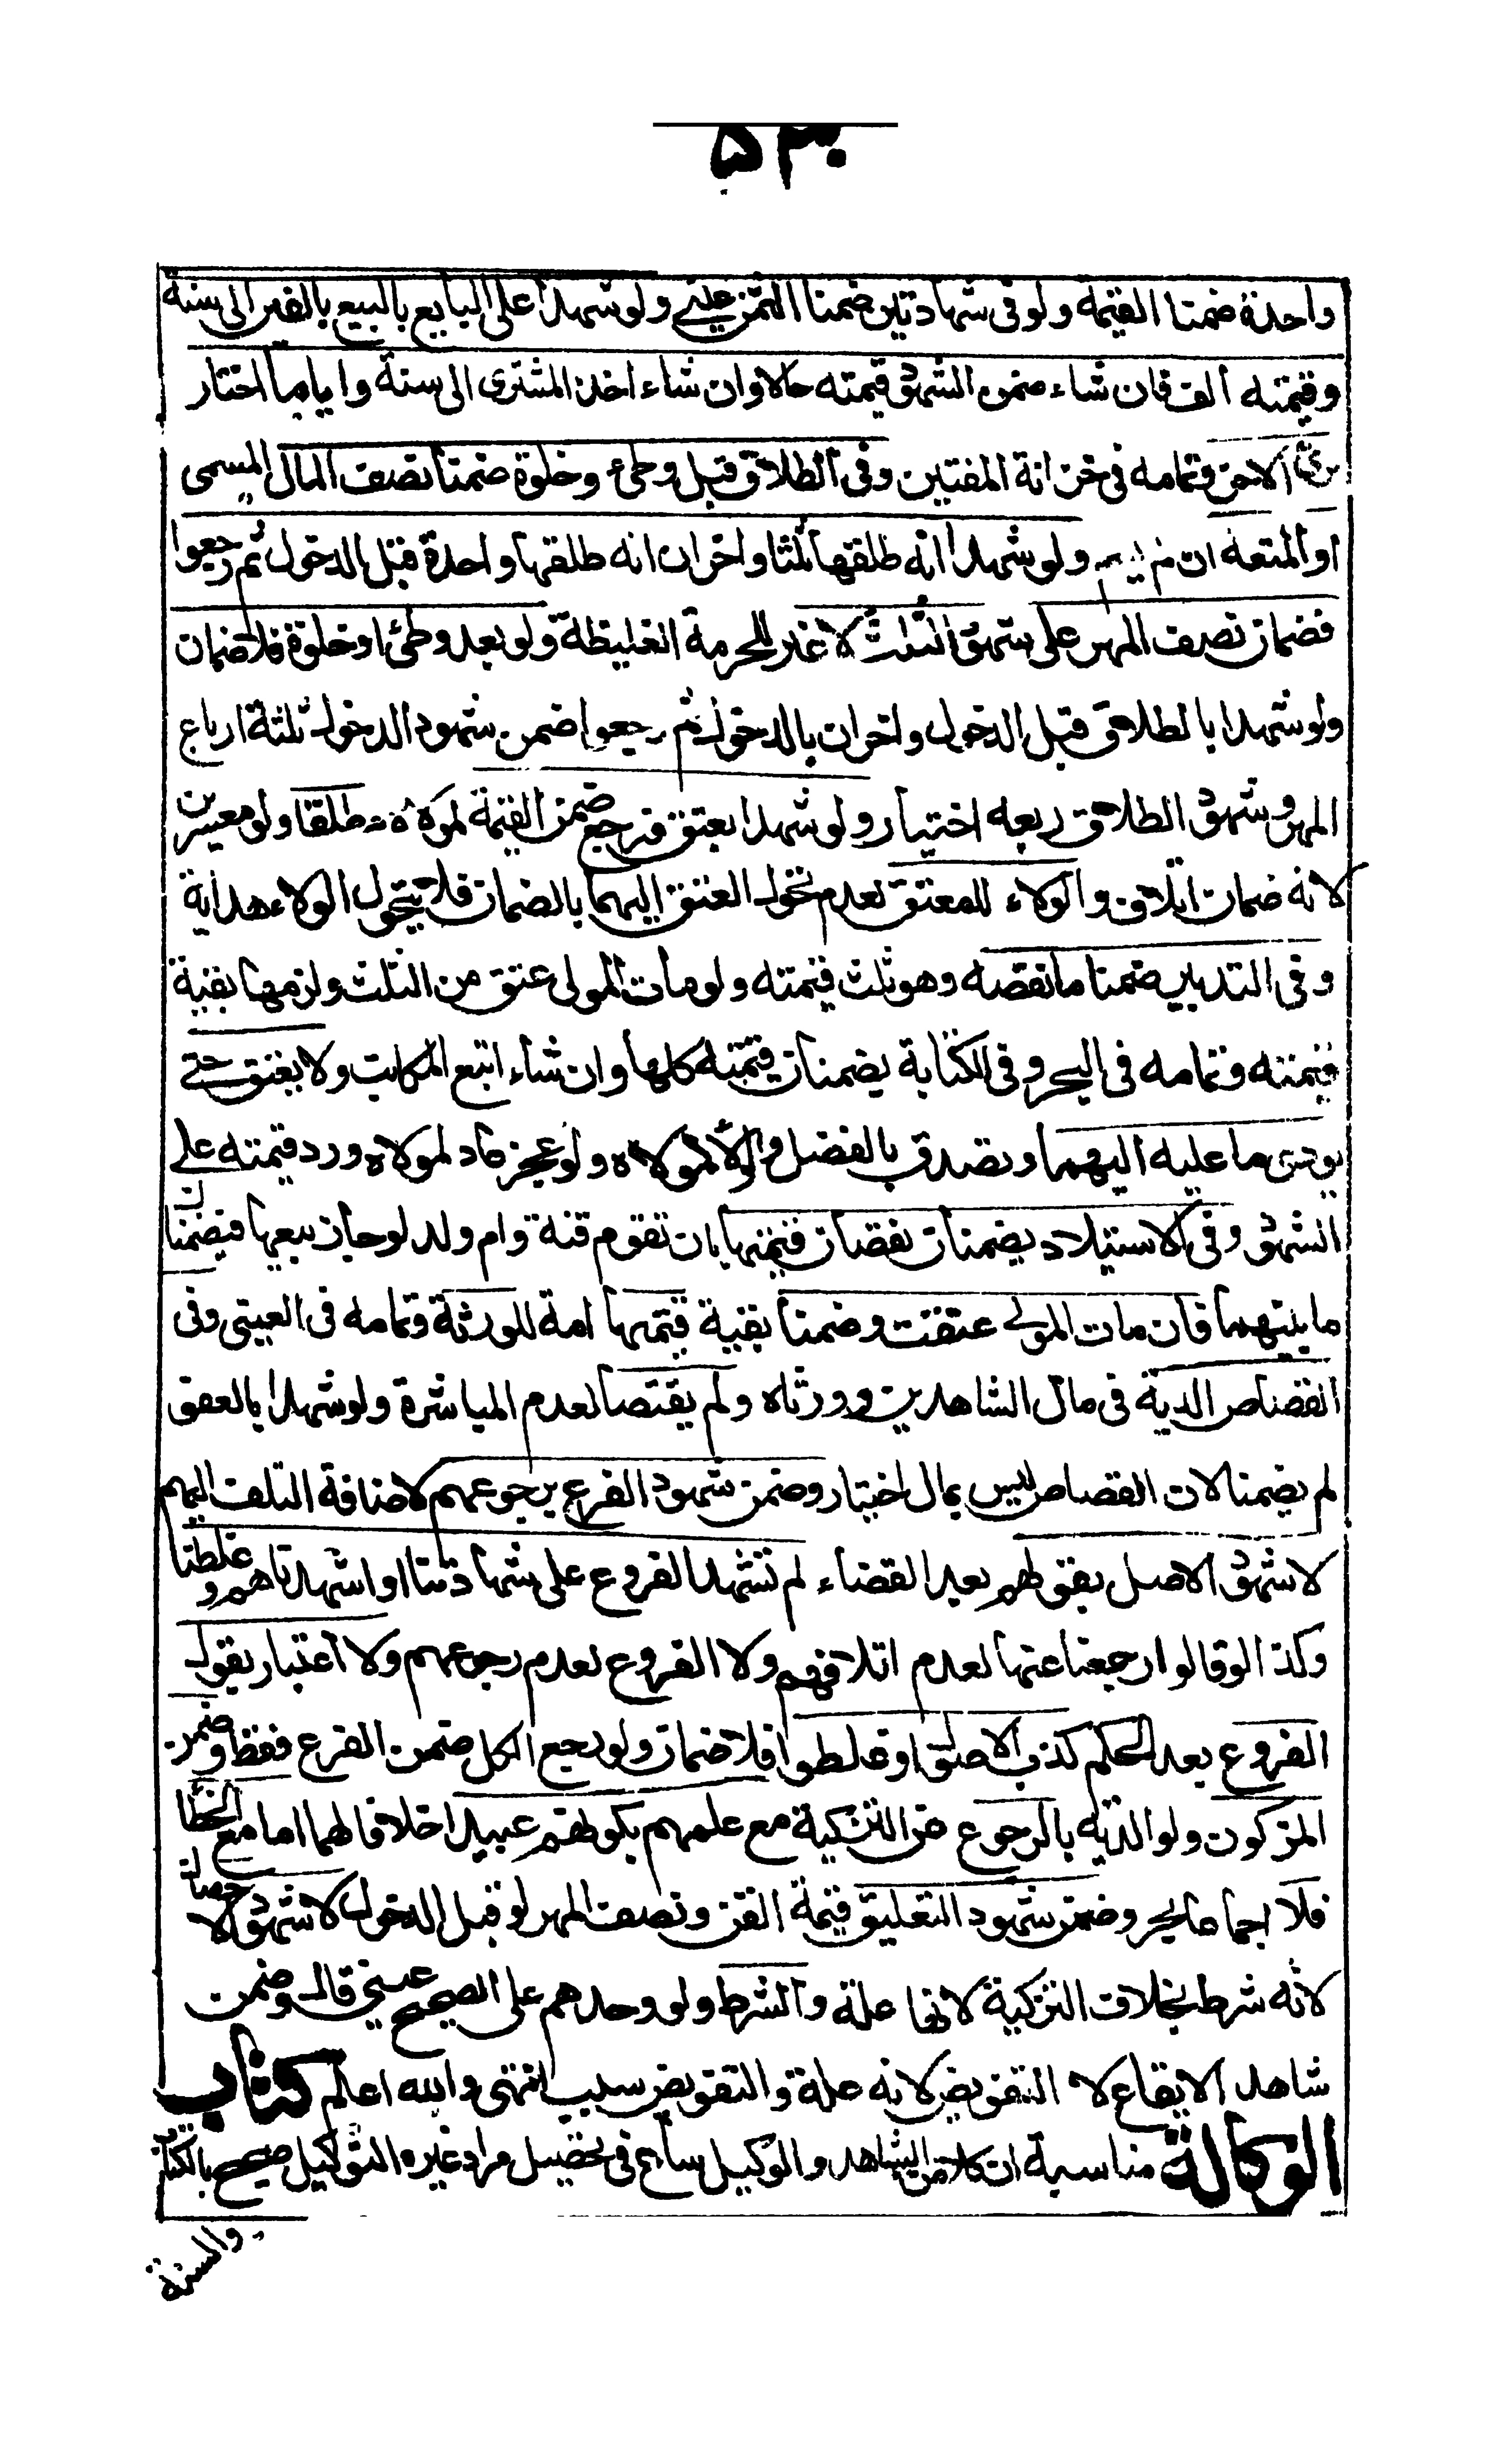 ٥٣٠
واحدة ضمنا القيمة ولو في شهادتين ضمنا الثمن عيني ولو شهدا على البايع بالبيع بالفين الى سنة
وقيمته الف فان شاء ضمن الشهود قيمته حالا وان شاء اخذ المشترى الى سنة وايا ما اختار
برئ الاخر وتمامه في خزانة المفتيين وفي الطلاق قبل وطئ وخلوة ضمنا نصف المال المسمى
او المتعة ان لم يسم ولو شهدا انه طلقها ثلثا واخران انه طلقها واحدة قبل الدخول ثم رجعوا
فضمان نصف المهر على شهود الثلث لا غير للحرمة الغليظة ولو بعد وطئ او خلوة فلا ضمان
ولو شهدا بالطلاق قبل الدخول واخران بالدخول ثم رجعوا ضمن شهود الدخول ثلثة ارباع
المهر وشهود الطلاق ربعه اختيار ولو شهدا بعتق فرجع ضمن القيمة لمولاه مطلقا ولو معسرين
لانه ضمان اتلاف والولاء للمعتق لعدم تحول العتق اليهما بالضمان فلا يتحول الولاء هداية
وفي التدبير ضمنا ما نقصه وهو ثلث قيمته ولو مات المولى عتق من الثلث ولزمهما بقية
قيمته وتمامه في البحر وفي الكتابة يضمنان قيمته كلها وان شاء اتبع المكاتب ولا يعتق حتى
يودى ما عليه اليهما وتصدق بالفضل والولا لمولاه ولو عجز عاد لمولاه ورد قيمته على
الشهود وفي الاستيلاد يضمنان نقصان قيمتها بان تقوم قنة وام ولد لو جاز بيعها فيضمنان
ما بينهما فان مات المولى عتقت وضمنا بقية قيمتها امة للورثة وتمامه في العيني وفي
القصاص الدية في مال الشاهدين وورثاه ولم يقتصا لعدم المباشرة ولو شهدا بالعفو
لم يضمنا لان القصاص ليس بمال اختيار وضمن شهود الفرع برجوعهم لاضافة التلف اليهم
لا شهود الاصل بقولهم بعد القضاء لم نشهد الفروع على شهادتنا او اشهدناهم وغلطنا
وكذا لو قالوا رجعنا عنها لعدم اتلافهم ولا الفروع لعدم رجوعهم ولا اعتبار بقول
الفروع بعد الحكم كذب الاصول او غلطوا فلا ضمان ولو رجع الكل ضمن الفرع فقط وضمن
المزكون ولو الدية بالرجوع عن التزكية مع علمهم بكونهم عبيدا خلافا لهما اما مع الخطا
فلا اجماعا بحر وضمن شهود التعليق قيمة القن ونصف المهر لو قبل الدخول لا شهود الاحصان
لانه شرط بخلاف التزكية لانها علة والشرط ولو وحدهم على الصحيح عيني قال وضمن
شاهد الايقاع لا التفويض لانه علة والتفويض سبب انتهى والله اعلم كتاب
الوكالة مناسبة ان كلا من الشاهد والوكيل ساع في تحصيل مراد غيره التوكيل صحيح بالكتاب
والسنة